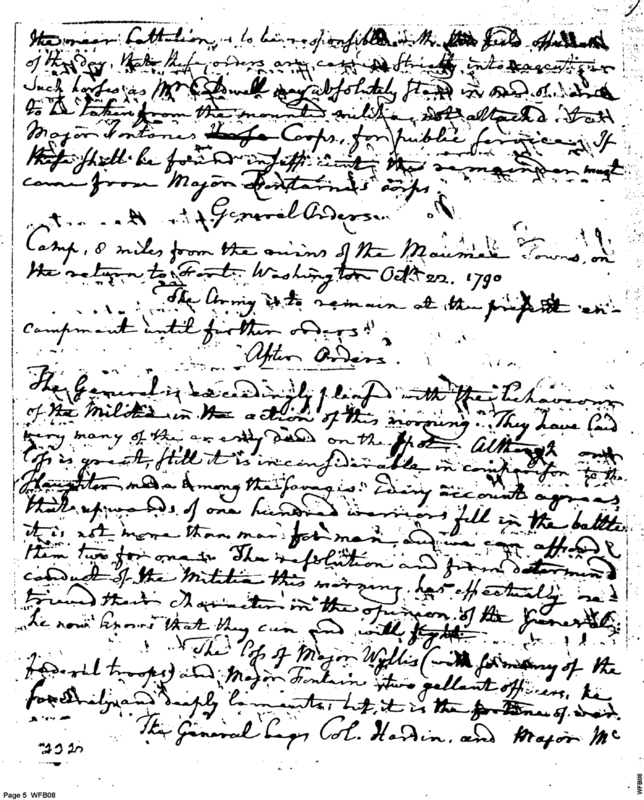 the rear battalion is to be responsible to the field officer
of the day, that these orders are carried strictly into execution
Such horses as Mr Caldwell may absolutely stand in need of are
to be taken from the mounted militia, not attached to
Major Fontanes Corps, for public service. If
these shall be found insufficient the remainder must
come from Major Fontaine's corps
General Orders
Camp, 8 miles from the ruins of the Maumee Towns, on
the return to Fort Washington Oct. 22. 1790
The Army is to remain at the present en-
campment until further orders.
After Orders.
The General is exceedingly pleased with the behaviour
of the Militia in the action of this morning. They have laid
very many of the enemy dead on the spot. Although our
loss is great, still it is inconsiderable in comparison to the
slaughter made among the savages. Every account agrees
that upwards of one hundred warriors fell in the battle
it is not more than man for man, and we can afford
them two for one. The resolution and firm determined
conduct of the Militia this morning has effectually re-
trieved their character in the opinion of the General
he now knows that they can and will fight
The loss of Major Wyllis (with so many of the
federal troops) and Major Fontain two gallant officers, he
sincerely and deeply laments, but it is the fortune of war.
The General begs Col. Hardin, and Major Mc
Page 5 WFB08
WFB08